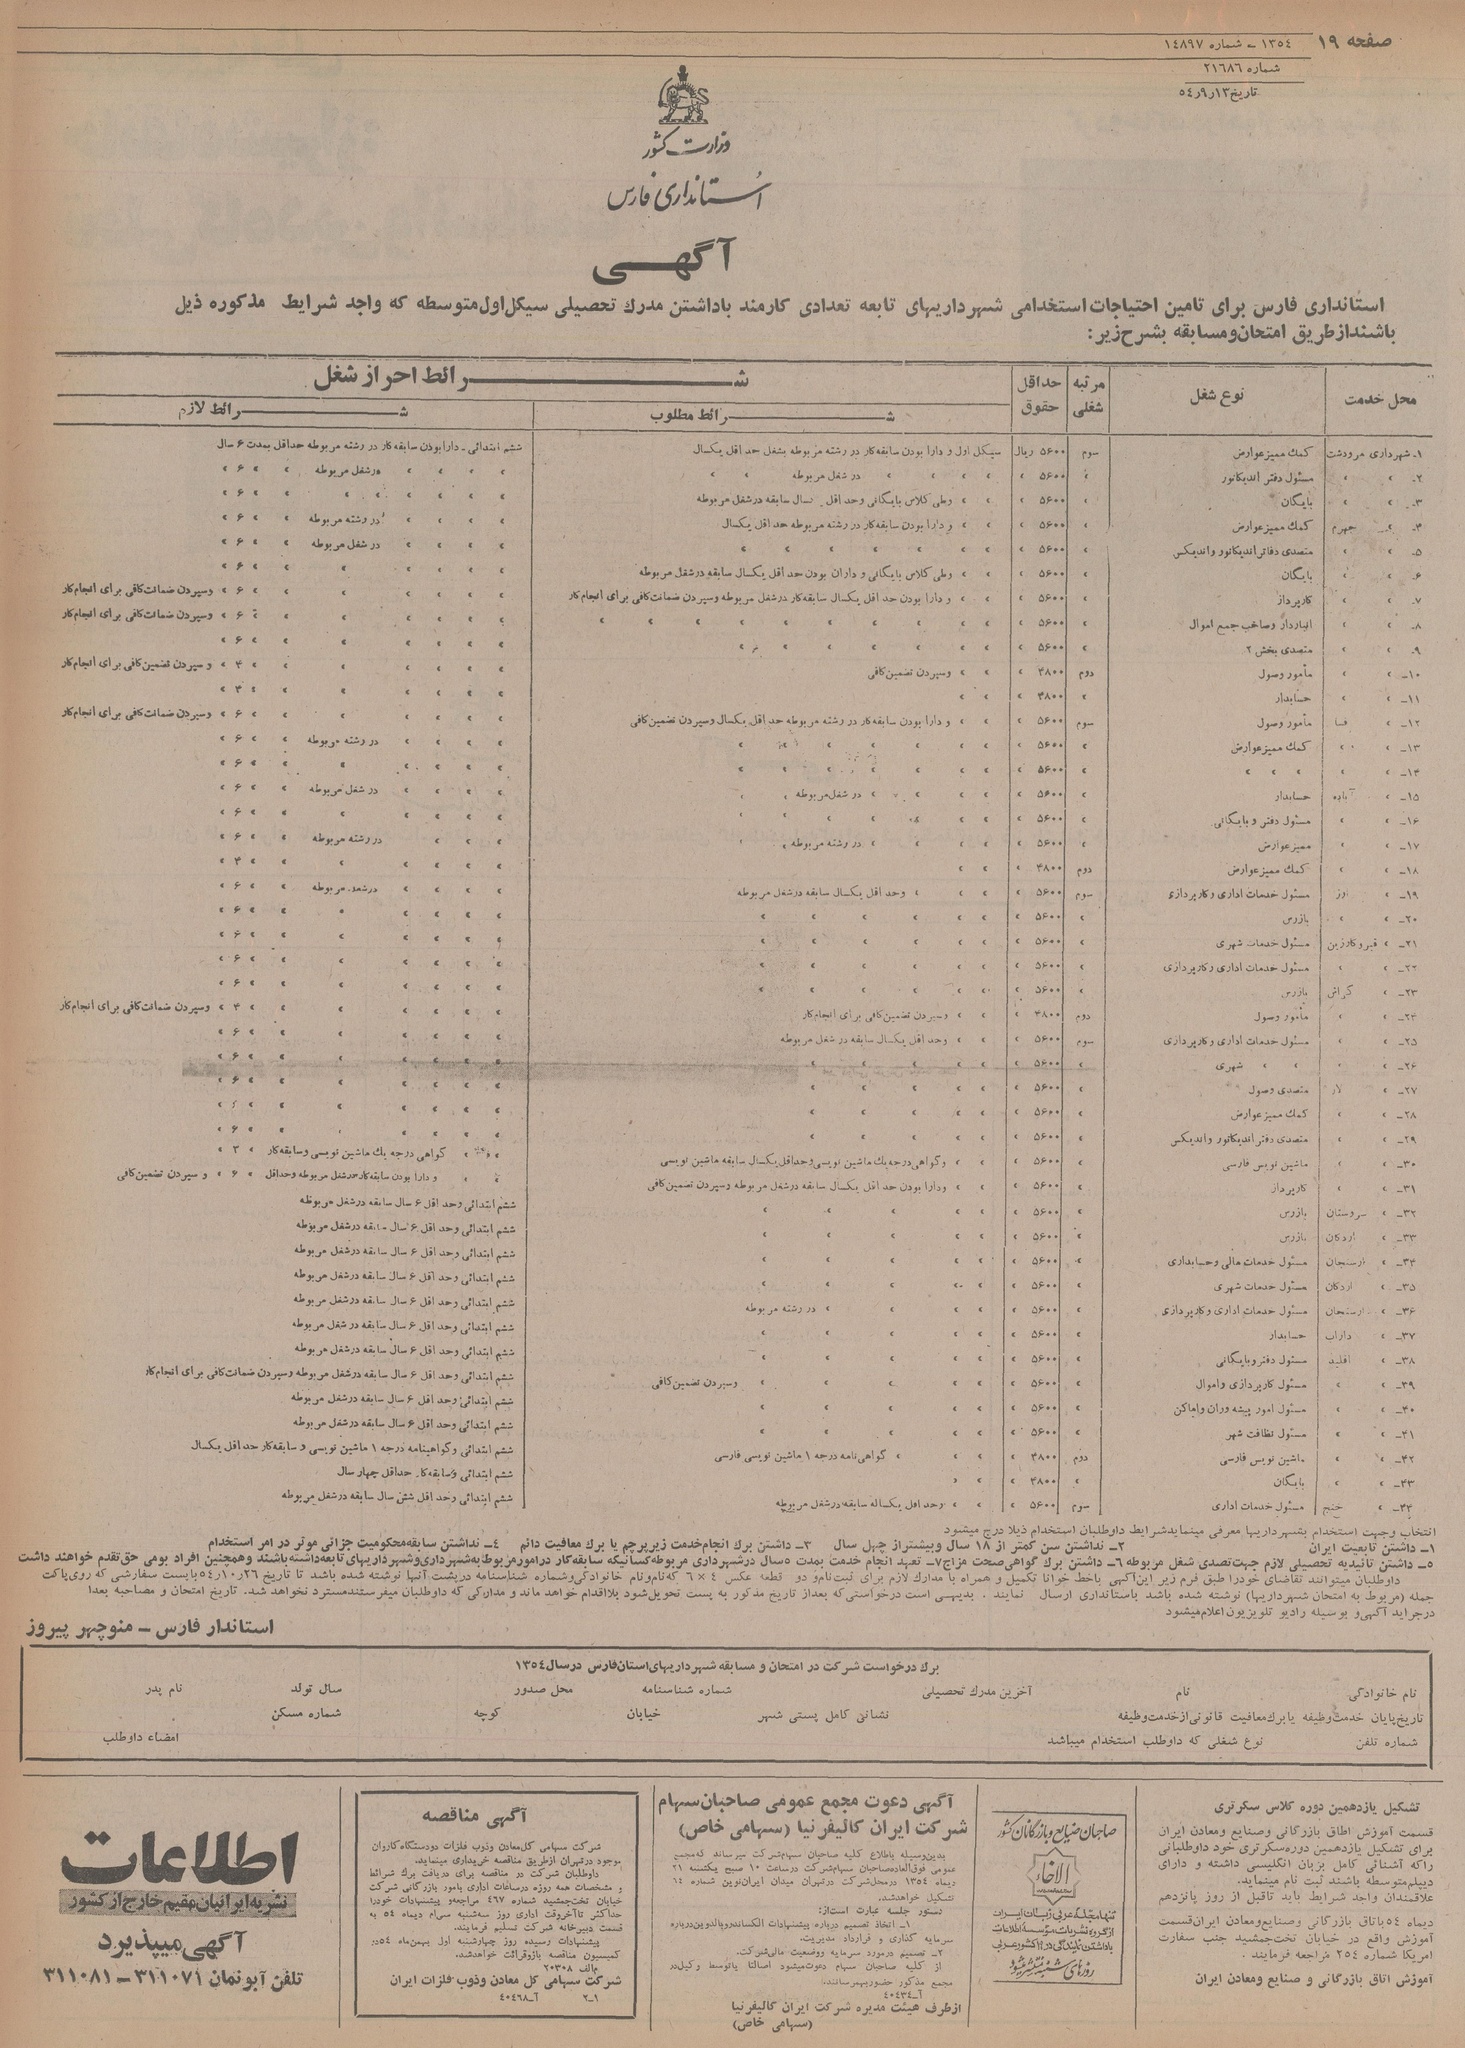 صفحه ۱۹
۱۳۵٤ ـ شماره ۱٤۸۹۷
شماره ۲۱۶۸۶
تاریخ ۱۳ر۹ر۵٤
وزارت کشور
اُستانداری فارس
آگهی
استانداری فارس برای تامین احتیاجات استخدامی شهرداریهای تابعه تعدادی کارمند باداشتن مدرك تحصیلی سیکل اول متوسطه که واجد شرایط مذکوره ذیل
باشند از طریق امتحان و مسابقه بشرح زیر:
محل خدمت
نوع شغل
مرتبه شغلی
حداقل حقوق
شرائط احراز شغل
شرائط مطلوب
شرائط لازم
۱ـ شهرداری مرودشت کمك ممیز عوارض سوم ۵۶۰۰ ریال سیکل اول و دارا بودن سابقه کار در رشته مربوطه بشغل حداقل یکسال ششم ابتدائی ـ دارا بودن سابقه کار در رشته مربوطه حداقل بمدت ۶ سال
۲ـ » » مسئول دفتر اندیکاتور » ۵۶۰۰ » » » » » در شغل مربوطه » » » » » » در شغل مربوطه » » ۶ »
۳ـ » » بایگان » ۵۶۰۰ » » » وطی کلاس بایگانی وحداقل سال سابقه در شغل مربوطه » » » » » » » ۶ »
۴ـ » جهرم کمك ممیز عوارض » ۵۶۰۰ » » » و دارا بودن سابقه کار در رشته مربوطه حداقل یکسال » » » » در رشته مربوطه » » ۶ »
۵ـ » » متصدی دفاتر اندیکاتور و اندیکس » ۵۶۰۰ » » » » » » » » » » » در شغل مربوطه » » ۶ »
۶ـ » » بایگان » ۵۶۰۰ » » » وطی کلاس بایگانی و داران بودن حداقل یکسال سابقه در شغل مربوطه » » » » » » » ۶ »
۷ـ » » کارپرداز » ۵۶۰۰ » » » و دارا بودن حداقل یکسال سابقه کار در شغل مربوطه وسپردن ضمانت کافی برای انجام کار » » » » » » » ۶ » وسپردن ضمانت کافی برای انجام کار
۸ـ » » انباردار و صاحب جمع اموال » ۵۶۰۰ » » » » » » » » » » » » » » » » » ۶ » وسپردن ضمانت کافی برای انجام کار
۹ـ » » متصدی بخش ۲ » ۵۶۰۰ » » » » » » » » » » » » » » ۶ »
۱۰ـ » » مأمور وصول دوم ۴۸۰۰ » » » وسپردن تضمین کافی » » » » » » » ۴ » وسپردن تضمین کافی برای انجام کار
۱۱ـ » » حسابدار » ۴۸۰۰ » » » » » » » » » » ۴ »
۱۲ـ » فسا مأمور وصول سوم ۵۶۰۰ » » » و دارا بودن سابقه کار در رشته مربوطه حداقل یکسال وسپردن تضمین کافی » » » » » » » ۶ » وسپردن ضمانت کافی برای انجام کار
۱۳ـ » » کمك ممیز عوارض » ۵۶۰۰ » » » » » » » » » » » در رشته مربوطه » » ۶ »
۱۴ـ » » » » » » ۵۶۰۰ » » » » » » » » » » » » » » ۶ »
۱۵ـ » آباده حسابدار » ۵۶۰۰ » » » » » در شغل مربوطه » » » » » در شغل مربوطه » » ۶ »
۱۶ـ » » مسئول دفتر و بایگانی » ۵۶۰۰ » » » » » » » » » » » » » » ۶ »
۱۷ـ » » ممیز عوارض » ۵۶۰۰ » » » » » در رشته مربوطه » » » » در رشته مربوطه » » ۶ »
۱۸ـ » » کمك ممیز عوارض دوم ۴۸۰۰ » » » » » » » » » » ۴ »
۱۹ـ » اوز مسئول خدمات اداری و کارپردازی سوم ۵۶۰۰ » » » » وحداقل یکسال سابقه در شغل مربوطه » » » » در شغل مربوطه » » ۶ »
۲۰ـ » » بازرس » ۵۶۰۰ » » » » » » » » » » » » » ۶ »
۲۱ـ » قیروکارزین مسئول خدمات شهری » ۵۶۰۰ » » » » » » » » » » » » » ۶ »
۲۲ـ » » مسئول خدمات اداری و کارپردازی » ۵۶۰۰ » » » » » » » » » » » » » ۶ »
۲۳ـ » گراش بازرس » ۵۶۰۰ » » » » » » » » » » » » » ۶ »
۲۴ـ » » مأمور وصول دوم ۴۸۰۰ » » » وسپردن تضمین کافی برای انجام کار » » » » » » » ۴ » وسپردن ضمانت کافی برای انجام کار
۲۵ـ » » مسئول خدمات اداری و کارپردازی سوم ۵۶۰۰ » » » وحداقل یکسال سابقه در شغل مربوطه » » » » » » » ۶ »
۲۶ـ » » » » شهری » ۵۶۰۰ » » » » » » » » » » » » ۶ »
۲۷ـ » لار متصدی وصول » ۵۶۰۰ » » » » » » » » » » » » ۶ »
۲۸ـ » » کمك ممیز عوارض » ۵۶۰۰ » » » » » » » » » » » » ۶ »
۲۹ـ » » متصدی دفتر اندیکاتور و اندیکس » ۵۶۰۰ » » » » » » » » » » » » ۶ »
۳۰ـ » » ماشین نویس فارسی » ۵۶۰۰ » » » وگواهی درجه یك ماشین نویسی وحداقل یکسال سابقه ماشین نویسی » » گواهی درجه یك ماشین نویسی وسابقه کار » ۳ »
۳۱ـ » » کارپرداز » ۵۶۰۰ » » » ودارا بودن حداقل یکسال سابقه در شغل مربوطه وسپردن تضمین کافی » » و دارا بودن سابقه کار در شغل مربوطه وحداقل » ۶ » وسپردن تضمین کافی
۳۲ـ » سروستان بازرس » ۵۶۰۰ » » » » » » ششم ابتدائی وحداقل ۶ سال سابقه در شغل مربوطه
۳۳ـ » اردکان بازرس » ۵۶۰۰ » » » » » » ششم ابتدائی وحداقل ۶ سال سابقه در شغل مربوطه
۳۴ـ » ارسنجان مسئول خدمات مالی وحسابداری » ۵۶۰۰ » » » » » » ششم ابتدائی وحداقل ۶ سال سابقه در شغل مربوطه
۳۵ـ » اردکان مسئول خدمات شهری » ۵۶۰۰ » » » » » » ششم ابتدائی وحداقل ۶ سال سابقه در شغل مربوطه
۳۶ـ » ارسنجان مسئول خدمات اداری و کارپردازی » ۵۶۰۰ » » » » » در رشته مربوطه ششم ابتدائی وحداقل ۶ سال سابقه در شغل مربوطه
۳۷ـ » داراب حسابدار » ۵۶۰۰ » » » » » » ششم ابتدائی وحداقل ۶ سال سابقه در شغل مربوطه
۳۸ـ » اقلید مسئول دفتر و بایگانی » ۵۶۰۰ » » » » » » ششم ابتدائی وحداقل ۶ سال سابقه در شغل مربوطه
۳۹ـ » » مسئول کارپردازی و اموال » ۵۶۰۰ » » » » » » وسپردن تضمین کافی ششم ابتدائی وحداقل ۶ سال سابقه در شغل مربوطه وسپردن ضمانت کافی برای انجام کار
۴۰ـ » » مسئول امور پیشه وران و اماکن » ۵۶۰۰ » » » » » » ششم ابتدائی وحداقل ۶ سال سابقه در شغل مربوطه
۴۱ـ » » مسئول نظافت شهر » ۵۶۰۰ » » » » » » ششم ابتدائی وحداقل ۶ سال سابقه در شغل مربوطه
۴۲ـ » » ماشین نویس فارسی دوم ۴۸۰۰ » » » » گواهی نامه درجه ۱ ماشین نویسی فارسی ششم ابتدائی وگواهینامه درجه ۱ ماشین نویسی و سابقه کار حداقل یکسال
۴۳ـ » » بایگان » ۴۸۰۰ » » » ششم ابتدائی وسابقه کار حداقل چهار سال
۴۴ـ » خنج مسئول خدمات اداری سوم ۵۶۰۰ » » » وحداقل یکساله سابقه در شغل مربوطه ششم ابتدائی وحداقل شش سال سابقه در شغل مربوطه
انتخاب وجهت استخدام بشهرداریها معرفی مینماید شرایط داوطلبان استخدام ذیلا درج میشود
۱ـ داشتن تابعیت ایران ۲ـ نداشتن سن کمتر از ۱۸ سال وبیشتر از چهل سال ۳ـ داشتن برك انجام خدمت زیرپرچم یا برك معافیت دائم ٤ـ نداشتن سابقه محکومیت جزائی موثر در امر استخدام
۵ـ داشتن تائیدیه تحصیلی لازم جهت تصدی شغل مربوطه ۶ـ داشتن برك گواهی صحت مزاج ۷ـ تعهد انجام خدمت بمدت ۵ سال در شهرداری مربوطه کسانیکه سابقه کار در امور مربوط به شهرداری و شهرداریهای تابعه داشته باشند وهمچنین افراد بومی حق تقدم خواهند داشت
داوطلبان میتوانند تقاضای خود را طبق فرم زیر این آگهی باخط خوانا تکمیل و همراه با مدارك لازم برای ثبت نام و دو قطعه عکس ٤ × ۶ که نام و نام خانوادگی و شماره شناسنامه در پشت آنها نوشته شده باشد تا تاریخ ۲۶ر۱۰ر۵٤ بایست سفارشی که روی پاکت
جمله (مربوط به امتحان شهرداریها) نوشته شده باشد باستانداری ارسال نمایند . بدیهی است درخواستی که بعد از تاریخ مذکور به پست تحویل شود بلااقدام خواهد ماند و مدارکی که داوطلبان میفرستند مسترد نخواهد شد. تاریخ امتحان و مصاحبه بعدا
در جراید آگهی و بوسیله رادیو تلویزیون اعلام میشود
استاندار فارس ـ منوچهر پیروز
برك درخواست شرکت در امتحان و مسابقه شهرداریهای استان فارس در سال ۱۳۵٤
نام خانوادگی نام آخرین مدرك تحصیلی شماره شناسنامه محل صدور سال تولد نام پدر
تاریخ پایان خدمت وظیفه یا برك معافیت قانونی از خدمت وظیفه نشانی کامل پستی شهر خیابان کوچه شماره مسکن
شماره تلفن نوع شغلی که داوطلب استخدام میباشد امضاء داوطلب
تشکیل یازدهمین دوره کلاس سکرتری
قسمت آموزش اطاق بازرگانی وصنایع و معادن ایران
برای تشکیل یازدهمین دوره سکرتری خود داوطلبانی
راکه آشنائی کامل بزبان انگلیسی داشته و دارای
دیپلم متوسطه باشند ثبت نام مینماید.
علاقمندان واجد شرایط باید تاقبل از روز پانزدهم
دیماه ۵٤ باتاق بازرگانی وصنایع ومعادن ایران قسمت
آموزش واقع در خیابان تخت جمشید جنب سفارت
امریکا شماره ۲۵٤ مراجعه فرمایند .
آموزش اتاق بازرگانی و صنایع ومعادن ایران
صاحبان صنایع و بازرگانان کشور
الاخاء
تنها مجله عربی زبان ایران
از گروه نشریات موسسه اطلاعات
باداشتن نمایندگی در ۱۲ کشور عربی
روزهای شنبه منتشر میشود
آگهی دعوت مجمع عمومی صاحبان سهام
شرکت ایران کالیفرنیا (سهامی خاص)
بدین وسیله باطلاع کلیه صاحبان سهام شرکت میرساند که مجمع
عمومی فوق العاده صاحبان سهام شرکت در ساعت ۱۰ صبح یکشنبه ۲۱
دیماه ۱۳۵٤ در محل شرکت در تهران میدان ایران نوین شماره ۱٤
تشکیل خواهد شد.
دستور جلسه عبارت است از:
۱ـ اتخاذ تصمیم درباره پیشنهادات الکساندر و بالدوین درباره
سرمایه گذاری و قرارداد مدیریت.
۲ـ تصمیم در مورد سرمایه ووضعیت مالی شرکت.
از کلیه صاحبان سهام دعوت میشود اصالتا یا توسط وکیل در
مجمع مذکور حضور بهمرسانند.
آـ٤۰٤۳٤
از طرف هیئت مدیره شرکت ایران کالیفرنیا
(سهامی خاص)
آگهی مناقصه
شرکت سهامی کل معادن وذوب فلزات دو دستگاه کاروان
موجود در تهران از طریق مناقصه خریداری مینماید.
داوطلبان شرکت در مناقصه برای دریافت برك شرائط
و مشخصات همه روزه در ساعات اداری بامور بازرگانی شرکت
خیابان تخت جمشید شماره ٤۶۷ مراجعه و پیشنهادات خود را
حداکثر تا آخر وقت اداری روز سه شنبه سی ام دیماه ۵٤ به
قسمت دبیرخانه شرکت تسلیم فرمایند.
پیشنهادات رسیده روز چهارشنبه اول بهمن ماه ۵٤ در
کمیسیون مناقصه باز و قرائت خواهد شد.
م الف ۲۰۳۰۸
شرکت سهامی کل معادن وذوب فلزات ایران
۲ـ۱ آـ٤۰٤۶۸
اطلاعات
نشریه ایرانیان مقیم خارج از کشور
آگهی میپذیرد
تلفن آبونمان ۳۱۱۰۷۱ ـ ۳۱۱۰۸۱